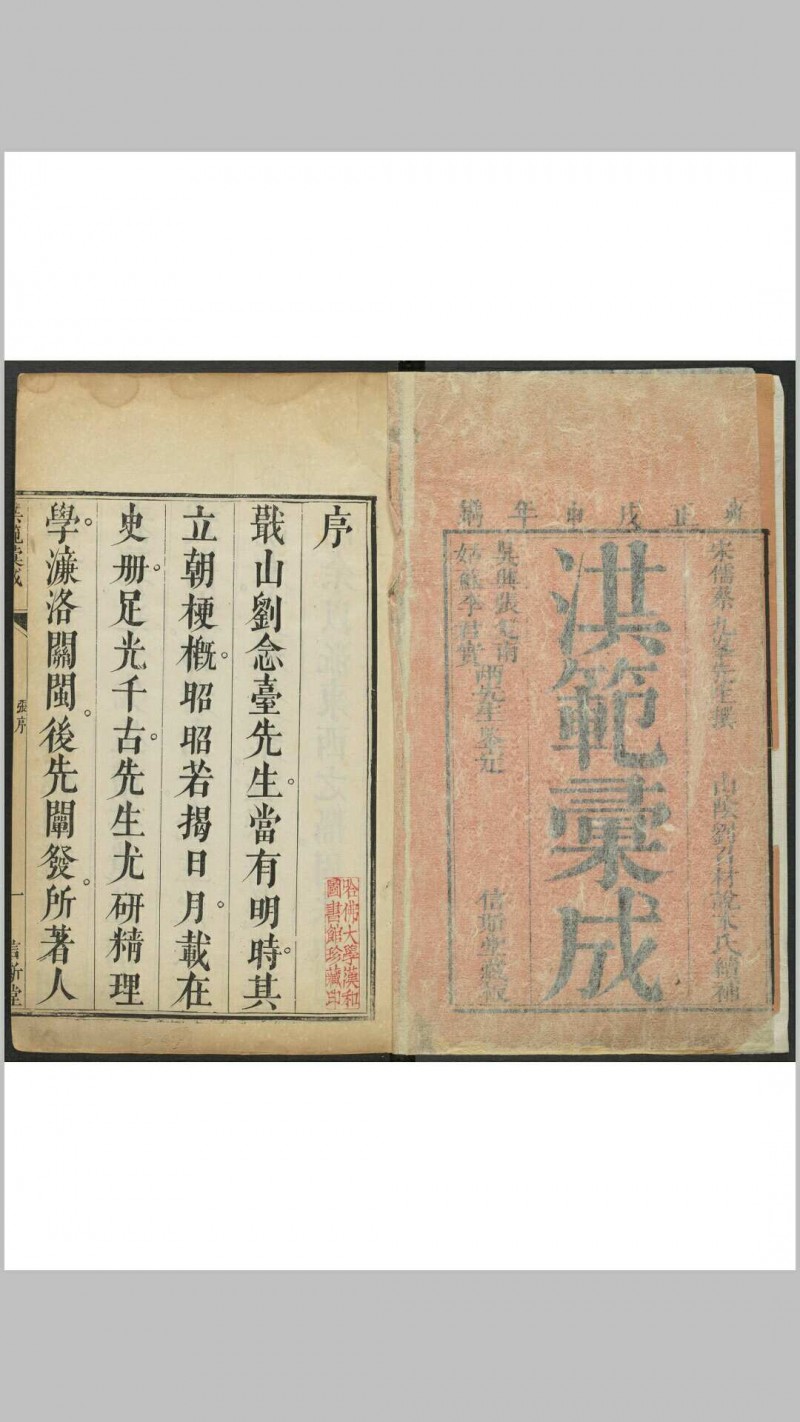 雍正戊申年鐫
宋儒蔡九峯先生撰
山陰劉召材
氏續補
洪範彙成
兩先生鑒定
信斯堂藏板
序
哈佛大學漢和
圖書館珍藏印
戢山劉念臺先生。當有明時。其
立朝梗槪。昭昭若揭日月。載在
史册。足光千古。先生尤研精理
學。濂洛關閩。後先闡發。所著人
洪範彙成
張序
一
信斯堂